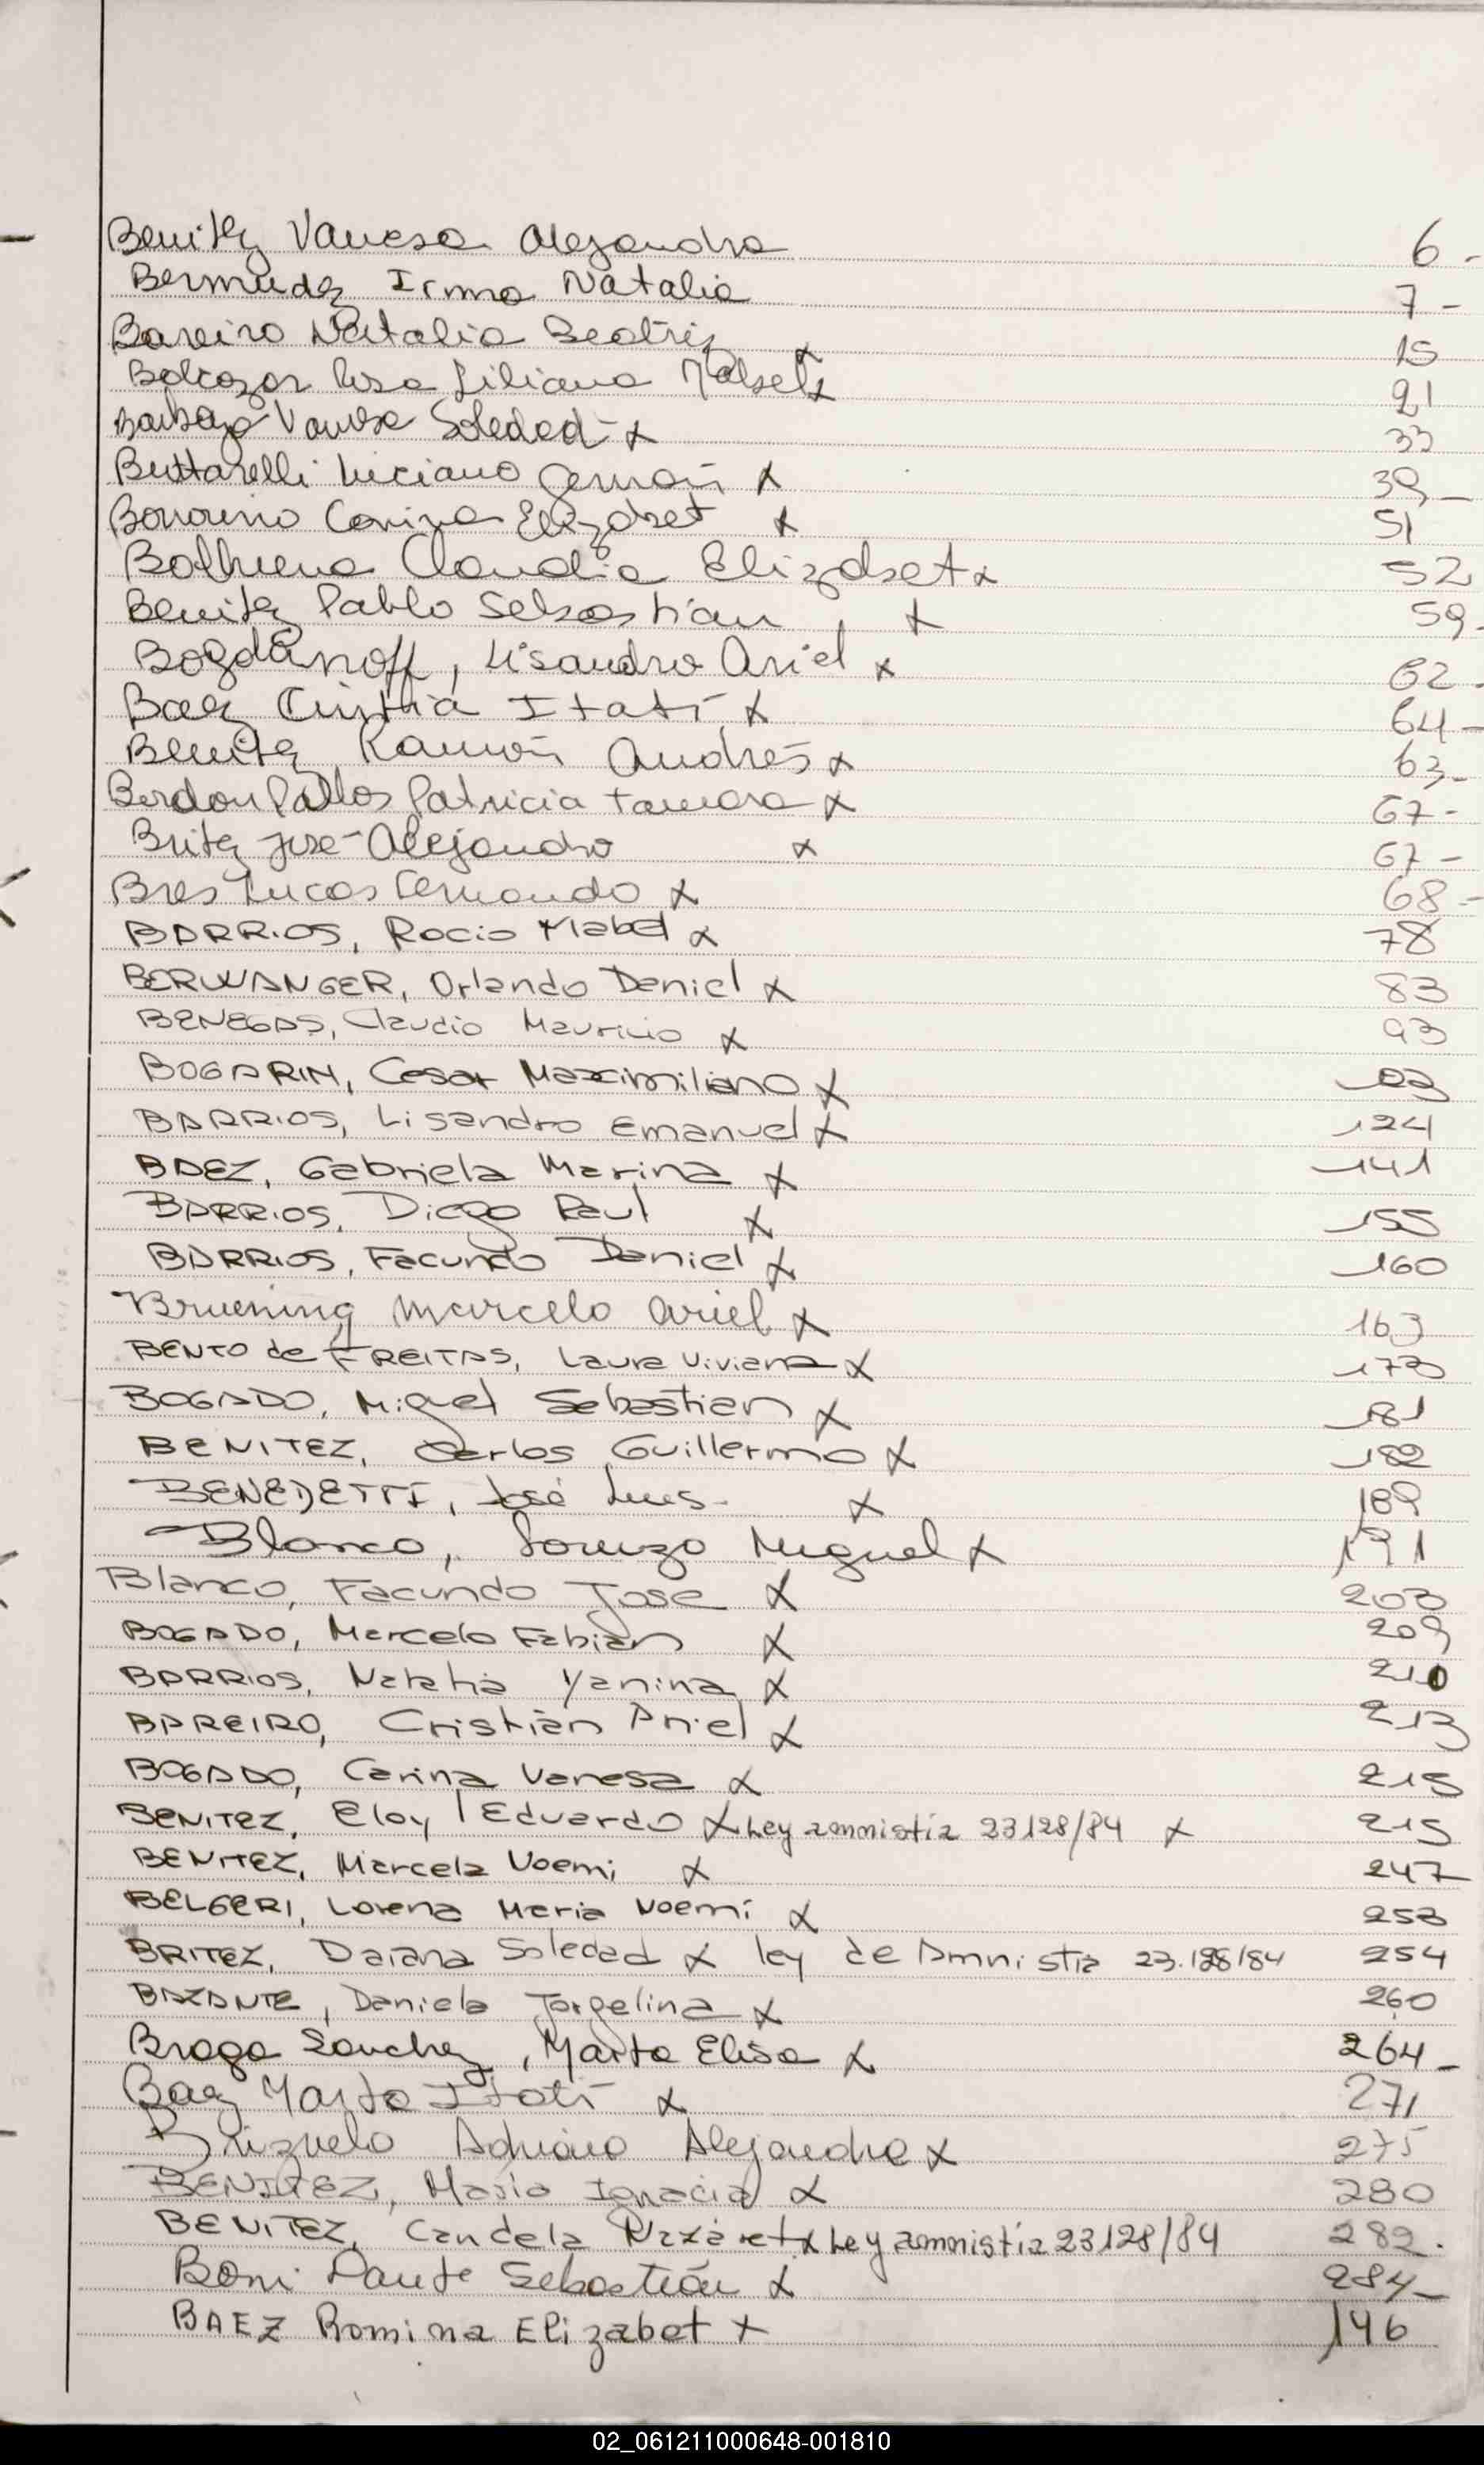 Benitez Vanesa Alejandra 6 -
Bermudez Irma Natalia 7 -
Bareiro Natalia Beatriz x 15
Balcazar Rosa Liliana x 21
Vanesa Soledad - x 33
Buttarelli Luciano Germán x 39 -
Bonorino Carina Elizabet x 51
Claudia Elizabet x 52
Benitez Pablo Sebastian x 59 -
Bogdanoff, Lisandro Ariel x 62 -
Baez Cinthia Itatí x 64 -
Benitez Ramón Andrés x 63 -
Patricia Tamara x 67 -
Britez José Alejandro x 67 -
Bres Lucas Fernando x 68 -
BARRIOS, Rocio Mabel x 78
BERWANGER, Orlando Daniel x 83
BENEGAS, Claudio Mauricio x 93
BOGARIN, Cesar Maximiliano x 103
BARRIOS, Lisandro Emanuel x 124
BAEZ, Gabriela Marina x 141
BARRIOS, Diego Raul x 155
BARRIOS, Facundo Daniel x 160
Bruening Marcelo Ariel x 163
BENTO de FREITAS, Laura Viviana x 173
BOGADO, Miguel Sebastian x 181
BENITEZ, Carlos Guillermo x 182
BENEDETTI, José Luis - x 189
Blanco, Lorenzo Miguel x 191
Blanco, Facundo Jose x 203
BOGADO, Marcelo Fabian x 209
BARRIOS, Natalia Yanina x 210
BAREIRO, Cristian Ariel x 213
BOGADO, Carina Vanesa x 215
BENITEZ, Eloy Eduardo x Ley amnistia 23128/84 x 215
BENITEZ, Marcela Noemi x 247
BELGERI, Lorena Maria Noemí x 253
BRITEZ, Daiana Soledad x ley de Amnistia 23.128/84 254
BAZANTE, Daniela Jorgelina x 260
Braga Sanchez, Marta Elisa x 264 -
Baez Marta Itatí x 271
Brizuela Adriana Alejandra x 275
BENITEZ, María Ignacia x 280
BENITEZ, Candela Nazaret x Ley amnistía 23128/84 282.
Boni Dante Sebastián x 284 -
BAEZ Romina Elizabet x 146
02_061211000648-001810